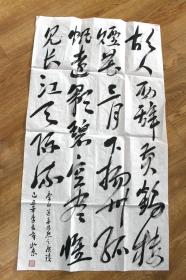 故人西辞黄鹤楼
烟花三月下扬州孤
帆远影碧空尽惟
见长江天际流
李白送孟浩然之广陵